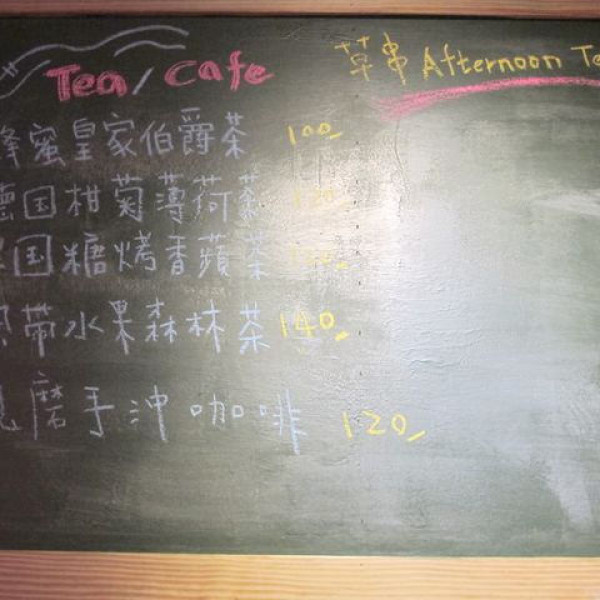 Tea/Cafe
草串 Afternoon Te
蜂蜜皇家伯爵茶 100
德国柑菊薄荷茶 120
国糖烤香蘋茶
帶水果森林茶 140
磨手沖咖啡 120